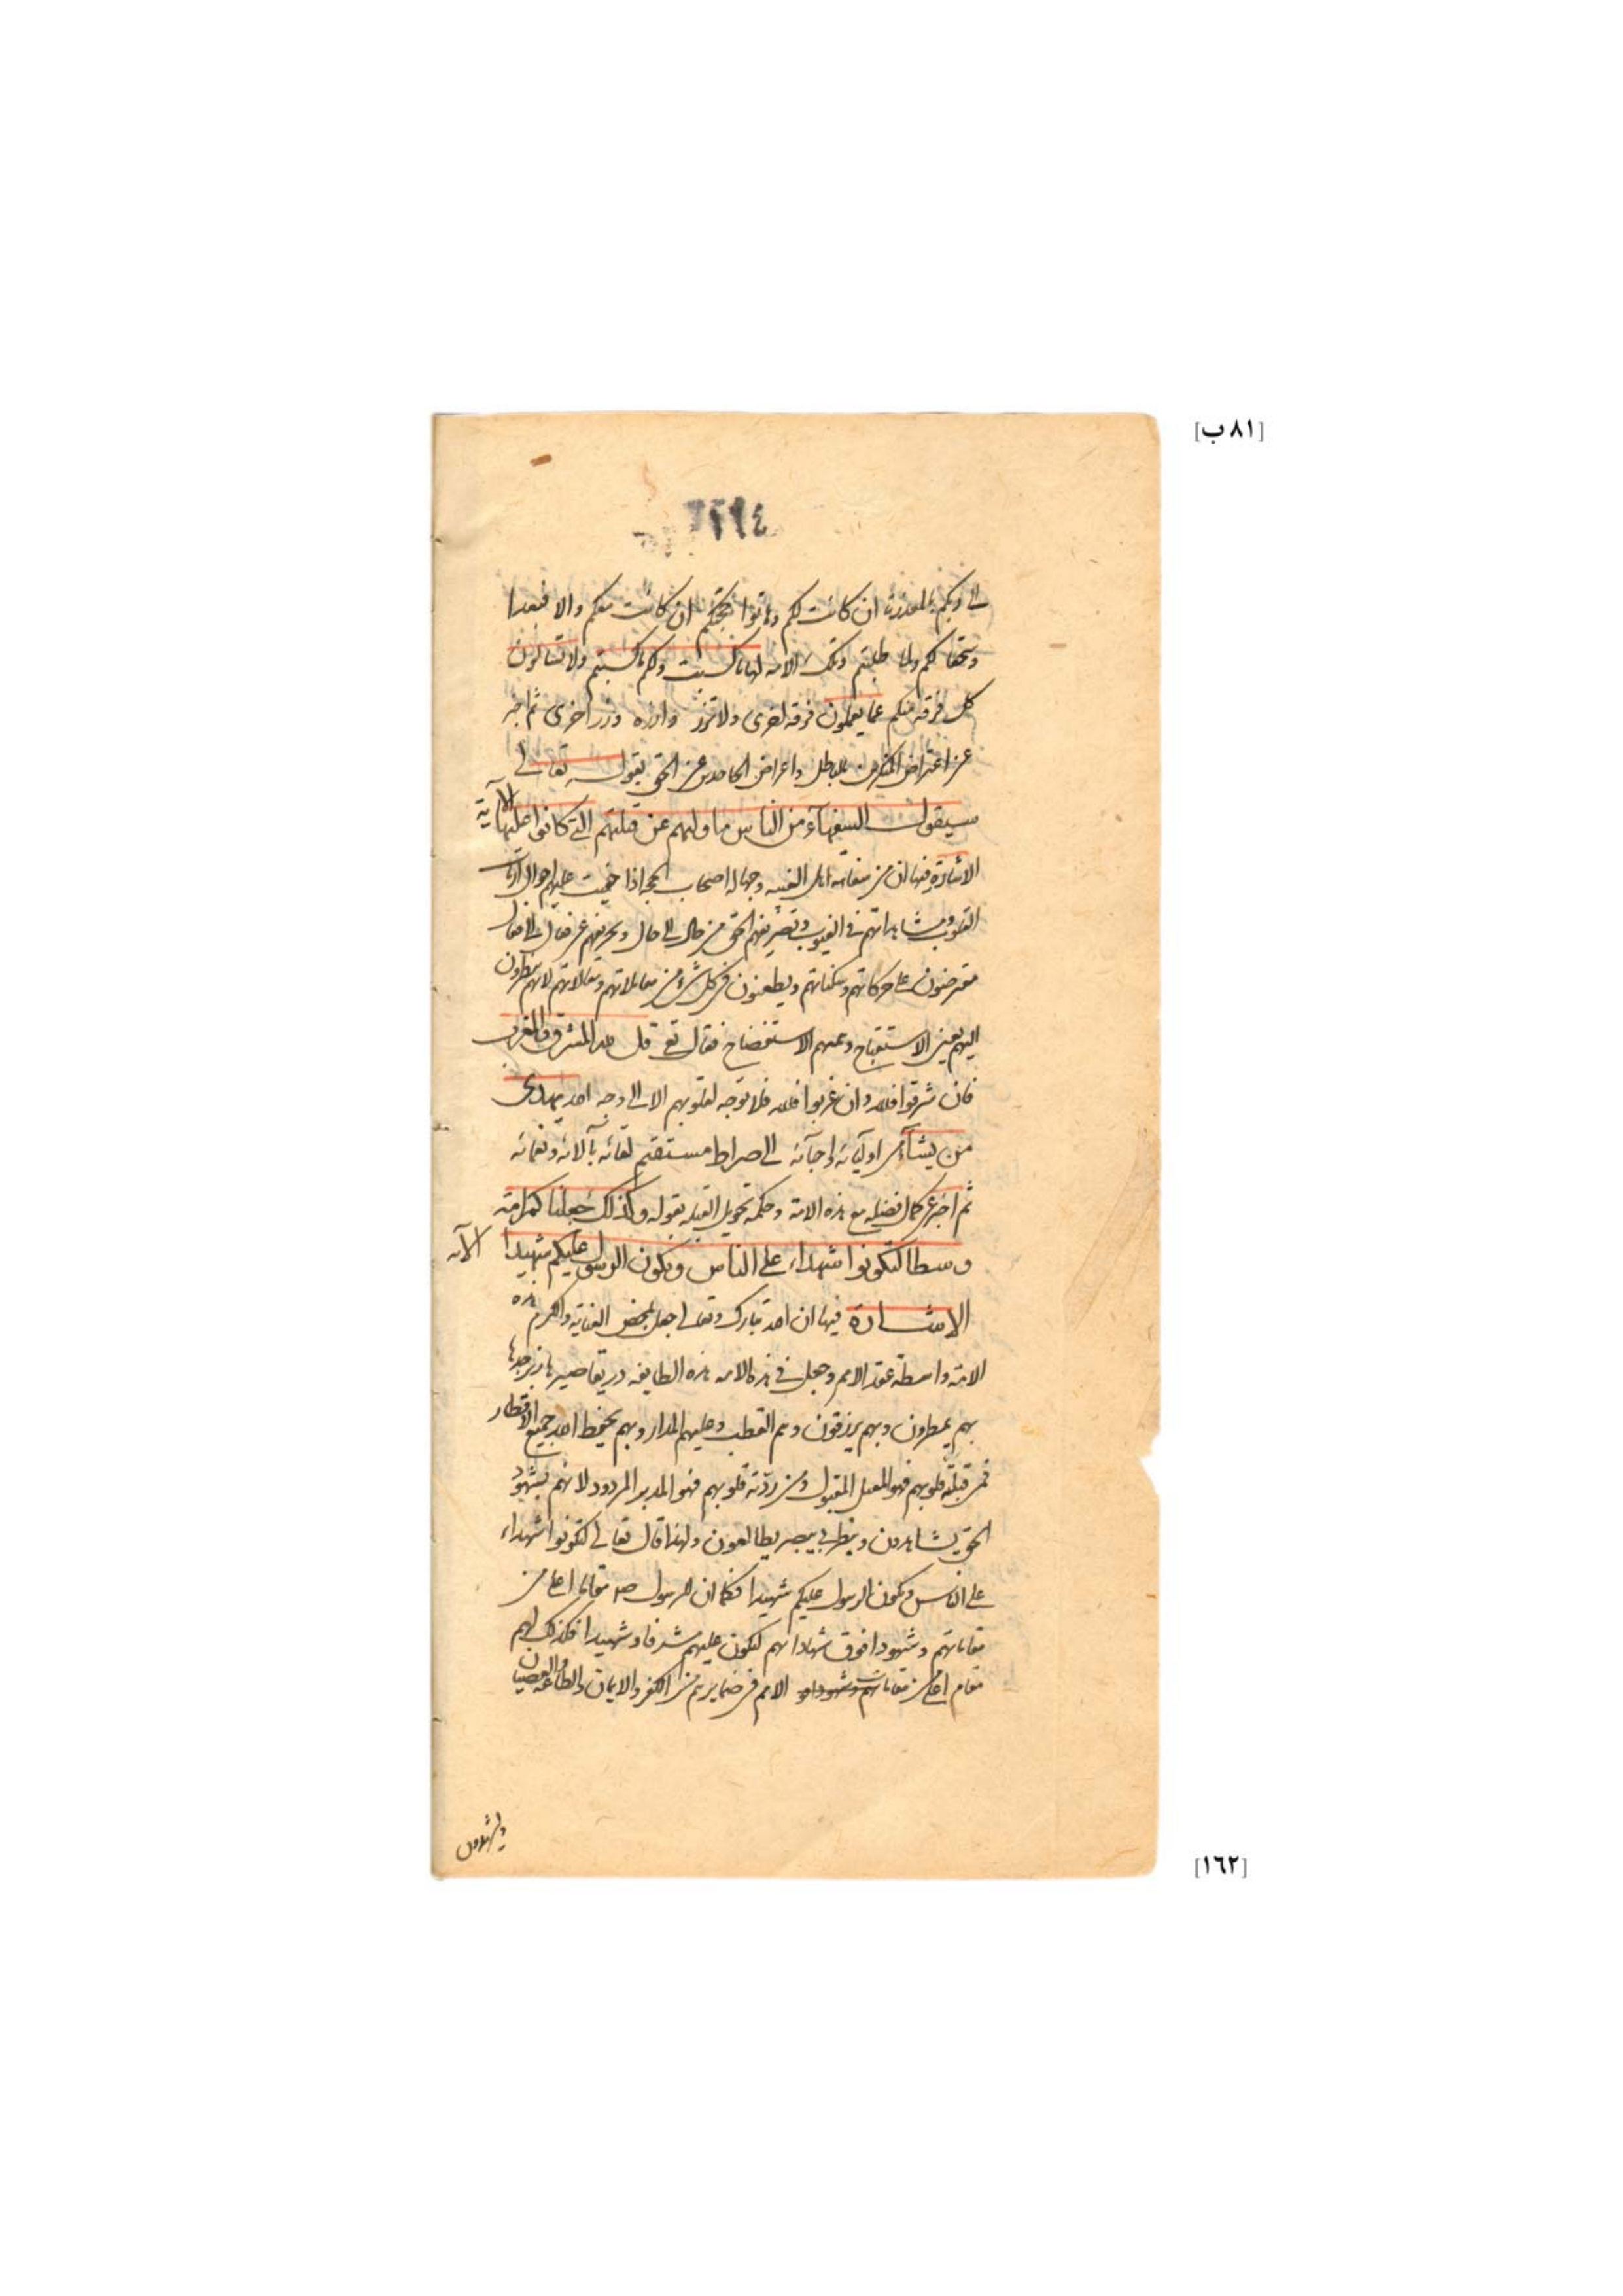 [٨١ ب]
الى ربكم بالمعذرة ان كانت لكم وهاتوا حجتكم ان كانت معكم والا فبعدا
وسحقا لكم ولما طلبتم وتلك الامة لها ما كسبت ولكم ما كسبتم ولا تسالون
كل فرقة منكم عما يعملون فرقة اخرى ولا تزر وازرة وزر اخرى ثم اخبر
عن اعتراض المنكرين بالباطل واعراض الجاحدين عن الحق بقوله تعالى
سيقول السفهآء من الناس ما وليهم عن قبلتهم التي كانوا عليها الآية
الاشارة فيها ان من سفاهة اهل الغيبه وجهالة اصحاب الحجبه اذا خفيت عليهم احوال ارباب
القلوب ومشاهداتهم في الغيوب وتصريفهم الحق من حال الى حال وتحريفهم عن فعال الى فعال
معترضون على حركاتهم وسكناتهم ويطعنون في كل شئ من معاملاتهم ومقالاتهم لانهم ينظرون
اليهم بعين الاستقباح وعمهم الاستفضاح فقال تع قل لله المشرق والمغرب
فان شرقوا فلله وان غربوا فلله فلا توجه لقلوبهم الا الى وجه الله يهدى
من يشآء من اوليائه واحبآئه الى صراط مستقيم لقائه بآلائه ونعمائه
ثم اخبر عن كمال فضيلة مع هذه الامة وحكمة تحويل القبلة بقوله وكذلك جعلناكم امة
وسطا لتكونوا شهداء على الناس ويكون الرسول عليكم شهيدا الآية
الاشارة فيها ان الله تبارك وتعالى جعل بمحض العناية والكرم هذه
الامة واسطة عقد الامم وجعل في هذه الامة هذه الطايفة در تقاصيرها وزبرجدها
بهم يمطرون وبهم يرزقون وهم القطب وعليهم المدار وبهم يحفظ الله جميع الاقطار
فمن قبلته قلوبهم فهو المقبل المقبول ومن ردته قلوبهم فهو المدبر المردود لانهم بشهود
الحق يشاهدون وبنظر بي يبصر يطالعون ولهذا قال تعالى لتكونوا شهداء
على الناس ويكون الرسول عليكم شهيدا فكما ان للرسول صم مقاما اعلى من
مقاماتهم وشهودا فوق شهاداتهم ليكون عليهم مشرفا وشهيدا فكذلك لهم
مقام اعلى من مقامات الامم في ضمايرهم من الكفر والايمان والطاعة والعصيان
[١٦٢]